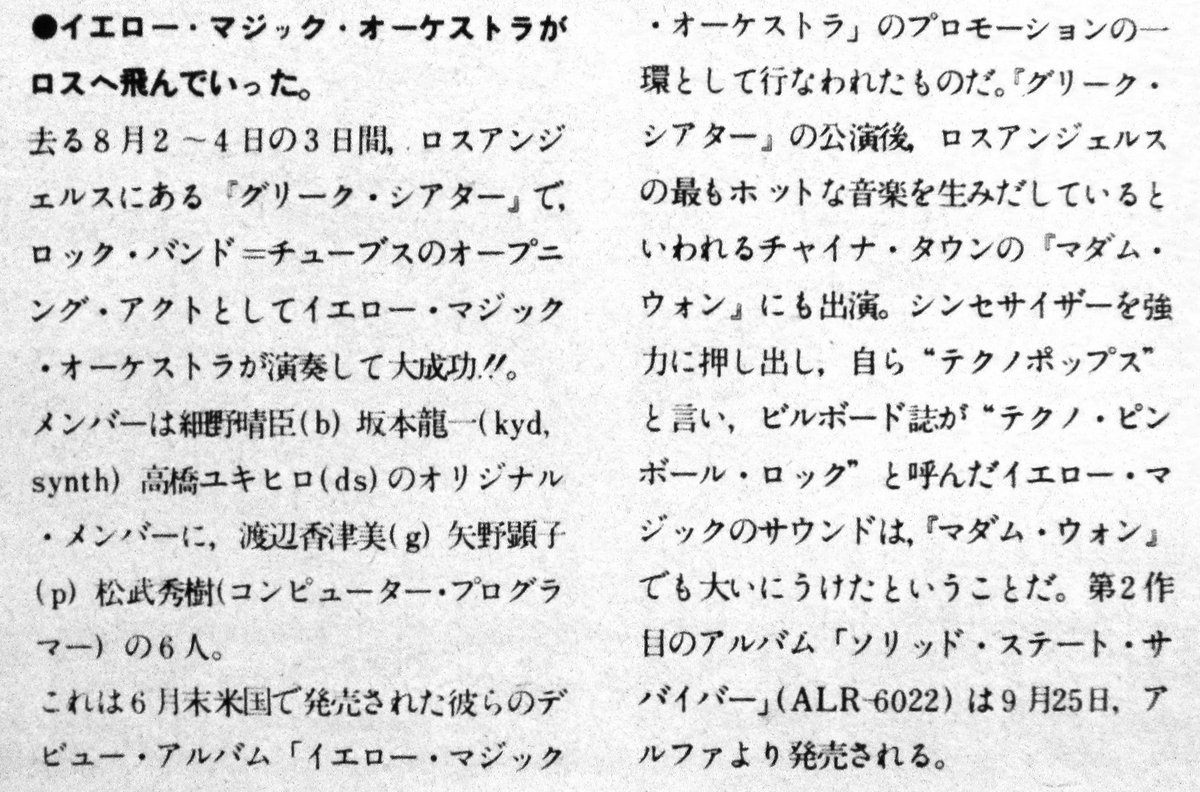 ●イエロー・マジック・オーケストラが
ロスへ飛んでいった。
去る8月2〜4日の3日間，ロスアンジ
ェルスにある『グリーク・シアター』で，
ロック・バンド＝チューブスのオープニ
ング・アクトとしてイエロー・マジック
・オーケストラが演奏して大成功!!。
メンバーは細野晴臣(b) 坂本龍一(kyd,
synth) 高橋ユキヒロ(ds)のオリジナル
・メンバーに，渡辺香津美(g) 矢野顕子
(p) 松武秀樹(コンピューター・プログラ
マー) の6人。
これは6月末米国で発売された彼らのデ
ビュー・アルバム「イエロー・マジック
・オーケストラ」のプロモーションの一
環として行なわれたものだ。『グリーク・
シアター』の公演後，ロスアンジェルス
の最もホットな音楽を生みだしていると
いわれるチャイナ・タウンの『マダム・
ウォン』にも出演。シンセサイザーを強
力に押し出し，自ら“テクノポップス”
と言い，ビルボード誌が“テクノ・ピン
ボール・ロック”と呼んだイエロー・マ
ジックのサウンドは，『マダム・ウォン』
でも大いにうけたということだ。第2作
目のアルバム「ソリッド・ステート・サ
バイバー」(ALR-6022) は9月25日，ア
ルファより発売される。